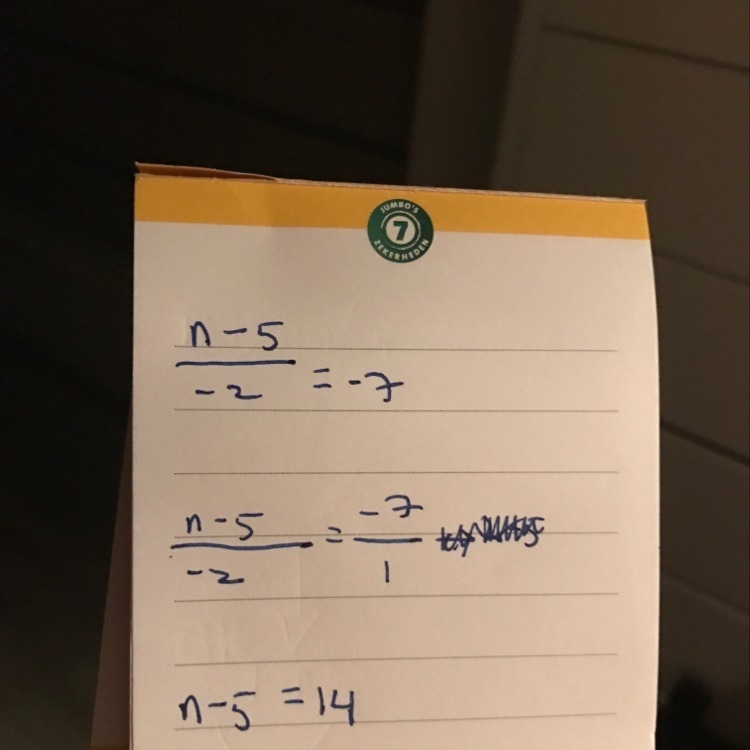 JUMBO'S
7
ZEKERHEDEN
n-5
-2 = -7
n-5 = -7
-2 1
n-5 = 14